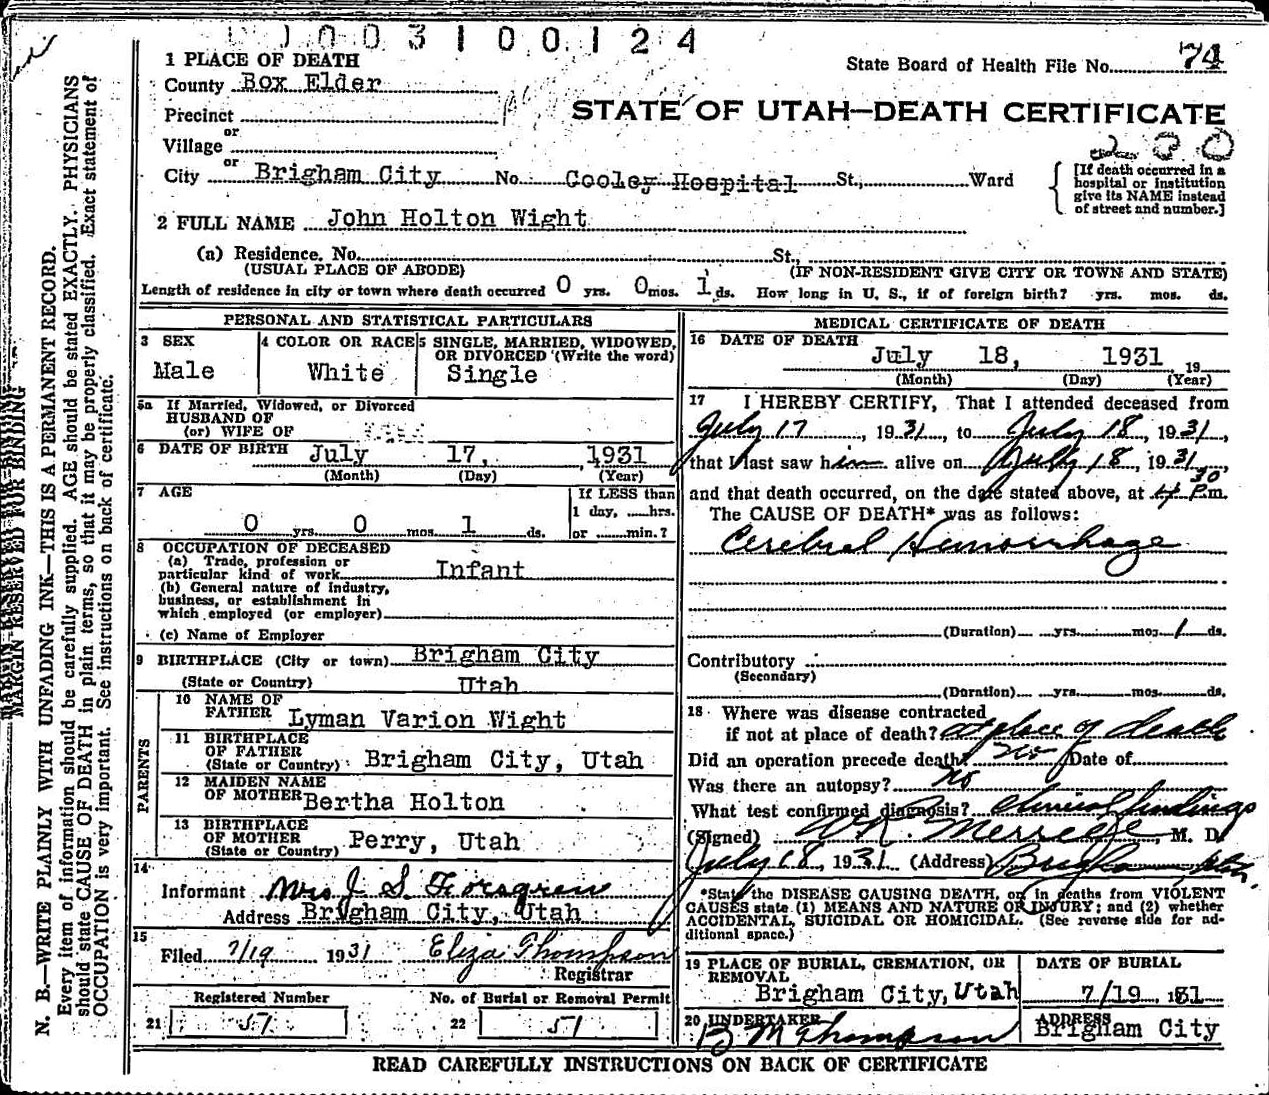 0 0 0 3 1 0 0 1 2 4
1 PLACE OF DEATH
State Board of Health File No. 74
County Box Elder
STATE OF UTAH—DEATH CERTIFICATE
Precinct
or
Village
200
or
City Brigham City No. Cooley Hospital St., Ward
[If death occurred in a
hospital or institution
give its NAME instead
of street and number.]
2 FULL NAME John Holton Wight
(a) Residence. No. St.,
(USUAL PLACE OF ABODE) (IF NON-RESIDENT GIVE CITY OR TOWN AND STATE)
Length of residence in city or town where death occurred 0 yrs. 0 mos. 1 ds. How long in U. S., if of foreign birth? yrs. mos. ds.
PERSONAL AND STATISTICAL PARTICULARS
3 SEX
Male
4 COLOR OR RACE
White
5 SINGLE, MARRIED, WIDOWED,
OR DIVORCED (Write the word)
Single
5a If Married, Widowed, or Divorced
HUSBAND OF
(or) WIFE OF
6 DATE OF BIRTH July 17, , 1931
(Month) (Day) (Year)
7 AGE
0 yrs. 0 mos 1 ds.
If LESS than
1 day, ......hrs.
or ......min.?
8 OCCUPATION OF DECEASED
(a) Trade, profession or
particular kind of work Infant
(b) General nature of industry,
business, or establishment in
which employed (or employer)
(c) Name of Employer
9 BIRTHPLACE (City or town) Brigham City
(State or Country) Utah
PARENTS
10 NAME OF
FATHER Lyman Varion Wight
11 BIRTHPLACE
OF FATHER
(State or Country) Brigham City, Utah
12 MAIDEN NAME
OF MOTHER Bertha Holton
13 BIRTHPLACE
OF MOTHER
(State or Country) Perry, Utah
14
Informant Mrs J. S. Forsgren
Address Brigham City, Utah
15
Filed 7/19 1931 Eliza Thompson
Registrar
Registered Number
21 57
No. of Burial or Removal Permit
22 51
MEDICAL CERTIFICATE OF DEATH
16 DATE OF DEATH
July 18, 1931 19
(Month) (Day) (Year)
17 I HEREBY CERTIFY, That I attended deceased from
July 17, 1931, to July 18, 1931,
that I last saw him alive on July 18, 1931,
and that death occurred, on the date stated above, at 4 30 P.m.
The CAUSE OF DEATH* was as follows:
Cerebral Hemorrhage
(Duration) yrs. mos. 1 ds.
Contributory
(Secondary)
(Duration) yrs. mos. ds.
18 Where was disease contracted
if not at place of death? at place of death
Did an operation precede death? no Date of
Was there an autopsy? no
What test confirmed diagnosis? Clinical findings
(Signed) W R. Merrell, M. D.
July 18, 1931 (Address) Brigham Utah.
*State the DISEASE CAUSING DEATH, or, in deaths from VIOLENT
CAUSES state (1) MEANS AND NATURE OF INJURY; and (2) whether
ACCIDENTAL, SUICIDAL OR HOMICIDAL. (See reverse side for ad-
ditional space.)
19 PLACE OF BURIAL, CREMATION, OR
REMOVAL
Brigham City, Utah
DATE OF BURIAL
7/19 , 1931
20 UNDERTAKER
B M Thompson
ADDRESS
Brigham City
READ CAREFULLY INSTRUCTIONS ON BACK OF CERTIFICATE
MARGIN RESERVED FOR BINDING
N. B.—WRITE PLAINLY WITH UNFADING INK—THIS IS A PERMANENT RECORD.
Every item of information should be carefully supplied. AGE should be stated EXACTLY. PHYSICIANS
should state CAUSE OF DEATH in plain terms, so that it may be properly classified. Exact statement of
OCCUPATION is very important. See instructions on back of certificate.